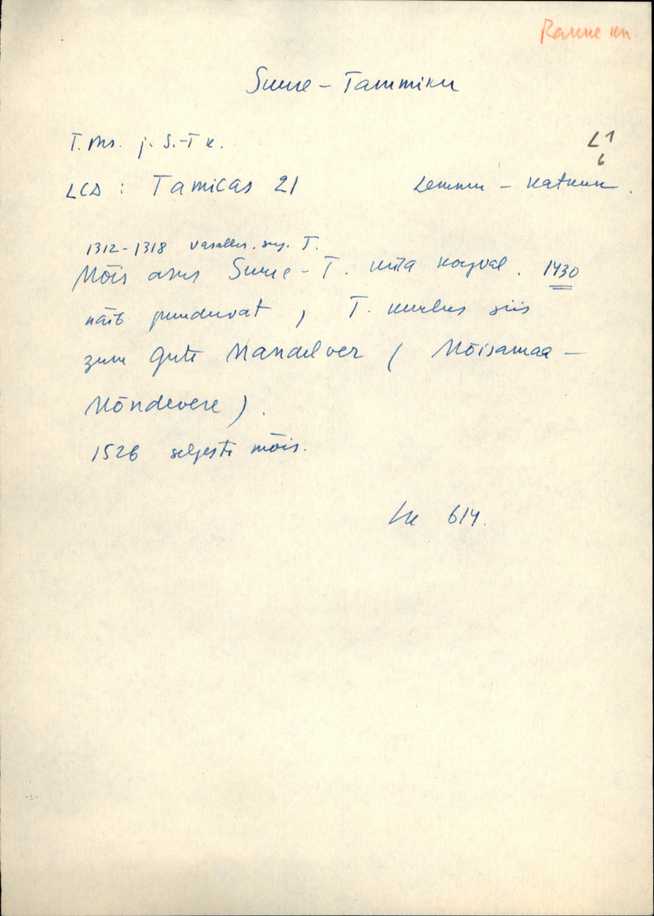 Suure-Tammiku
T. ms. j. S.-T k.
L1
6
LCD : Tamicas 21
Lemmu - Katkuu.
1312-1318 vasallus. sug. T.
Mõis asus Suure-T. küla kohal. 1430
näib puuduvat, T. kuulus siis
zum Gute Mandelver (Mõisamaa-
Mõndevere).
1526 selgesti mõis.
614.